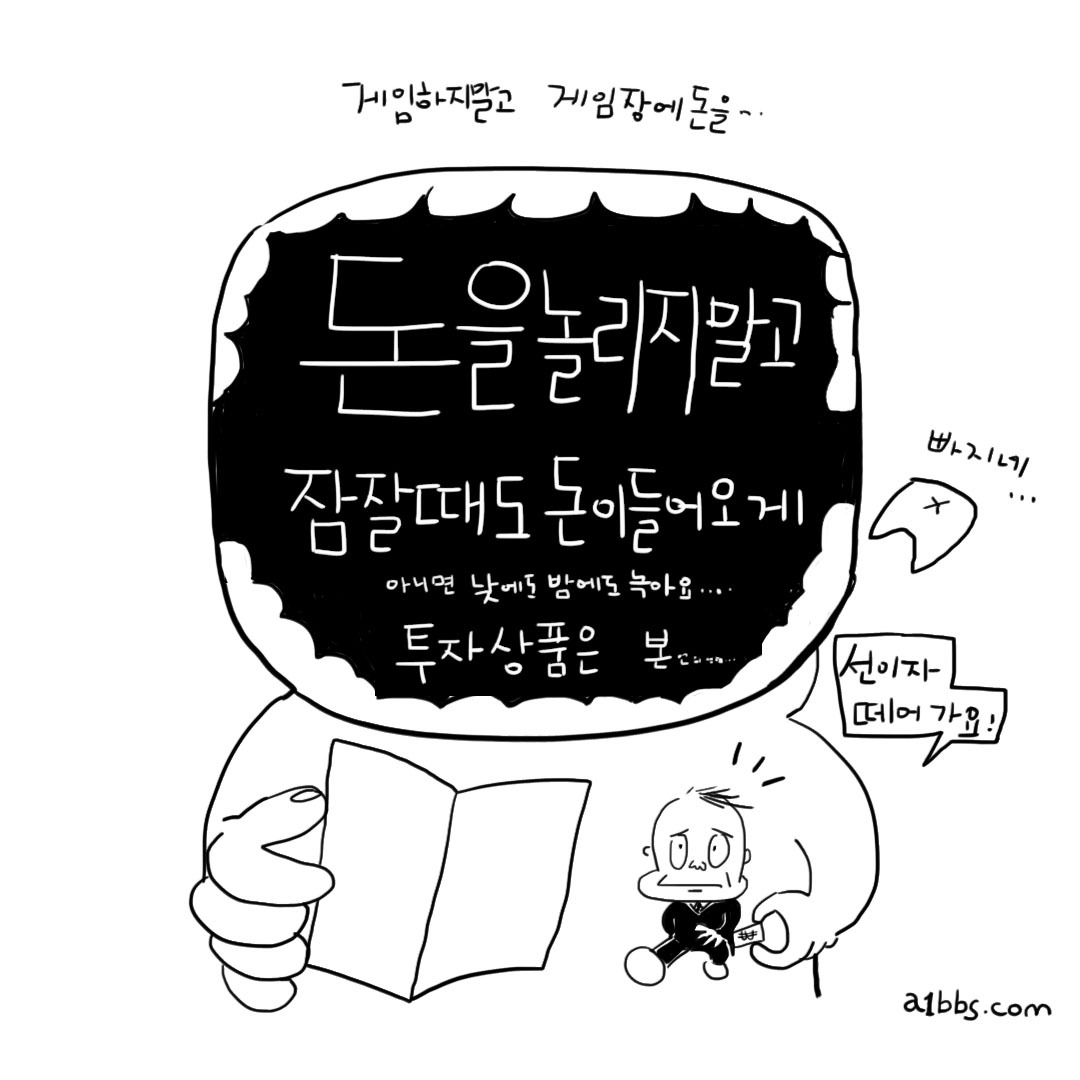 게임하지말고 게임장에돈을~..
돈을놀리지말고
잠잘때도 돈이들어오게
아니면 낮에도 밤에도 녹아요....
투자상품은 본
빠지네
...
선이자
떼어 가요!
₩
a1bbs.com